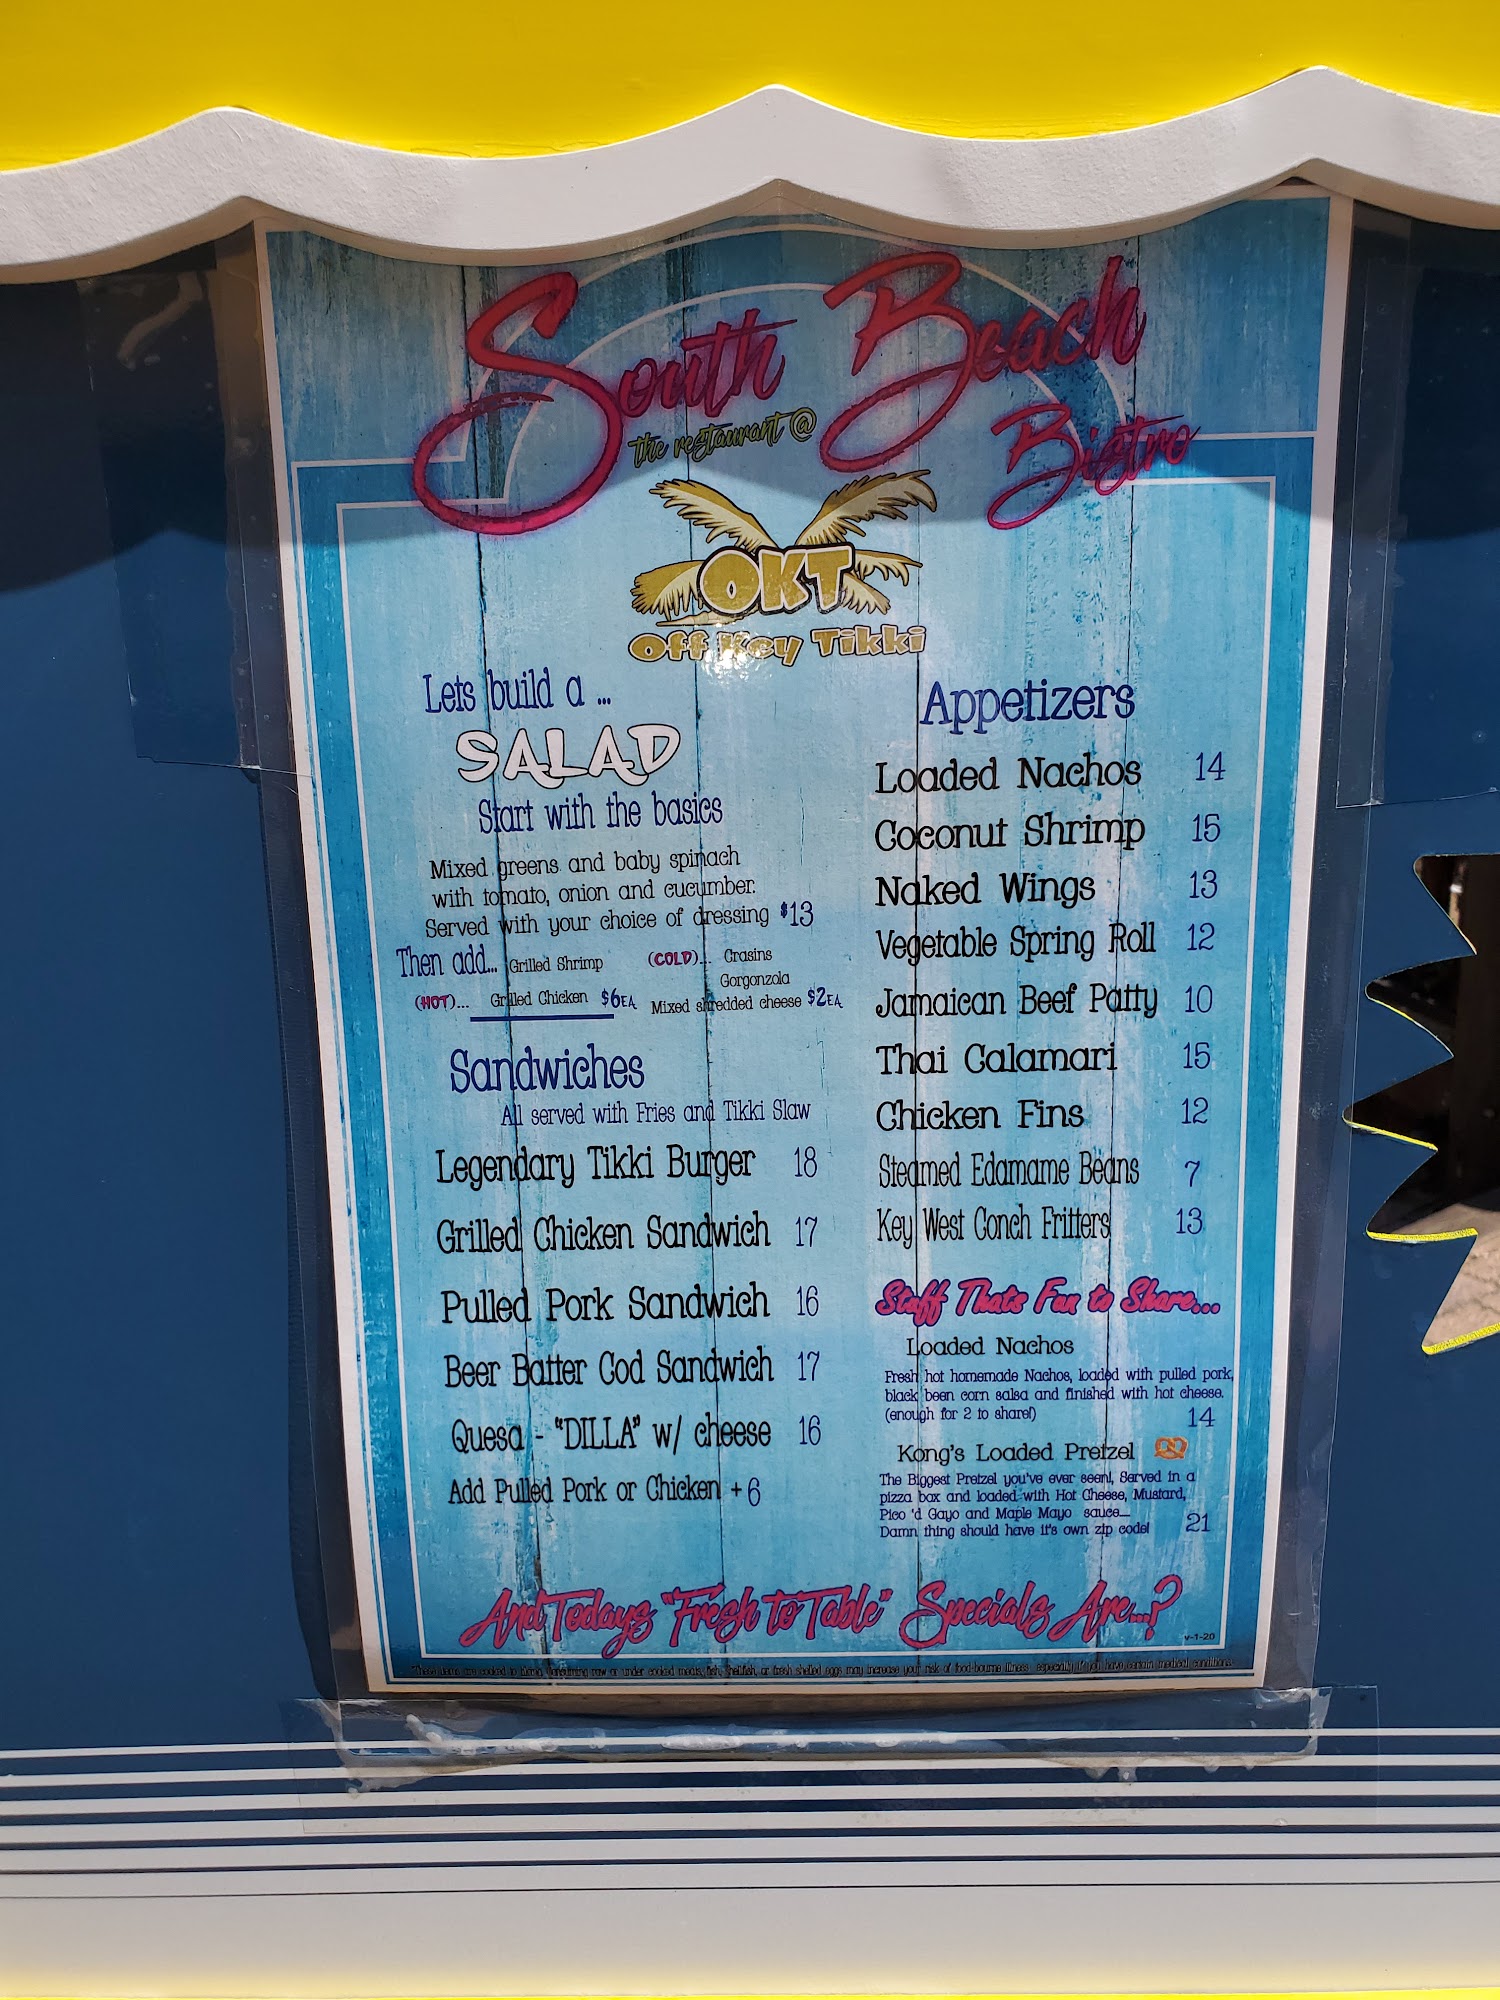 South Beach
the restaurant @
Bistro
OKT
Off Key Tikki
Lets build a ...
SALAD
Start with the basics
Mixed greens and baby spinach
with tomato, onion and cucumber.
Served with your choice of dressing $13
Then add... Grilled Shrimp
(HOT)... Grilled Chicken $6EA
(COLD)... Crasins
Gorgonzola
Mixed shredded cheese $2EA
Sandwiches
All served with Fries and Tikki Slaw
Legendary Tikki Burger 18
Grilled Chicken Sandwich 17
Pulled Pork Sandwich 16
Beer Batter Cod Sandwich 17
Quesa - "DILLA" w/ cheese 16
Add Pulled Pork or Chicken + 6
Appetizers
Loaded Nachos 14
Coconut Shrimp 15
Naked Wings 13
Vegetable Spring Roll 12
Jamaican Beef Patty 10
Thai Calamari 15
Chicken Fins 12
Steamed Edamame Beans 7
Key West Conch Fritters 13
Stuff Thats Fun to Share...
Loaded Nachos
Fresh hot homemade Nachos, loaded with pulled pork,
black been corn salsa and finished with hot cheese.
(enough for 2 to share!) 14
Kong's Loaded Pretzel
The Biggest Pretzel you've ever seen!, Served in a
pizza box and loaded with Hot Cheese, Mustard,
Pico 'd Gayo and Maple Mayo sauce....
Damn thing should have it's own zip code! 21
And Todays "Fresh to Table" Specials Are...?
v-1-20
*These items are cooked to order. Consuming raw or under cooked meats, fish, shellfish, or fresh shelled eggs may increase your risk of food-bourne illness, especially if you have certain medical conditions.